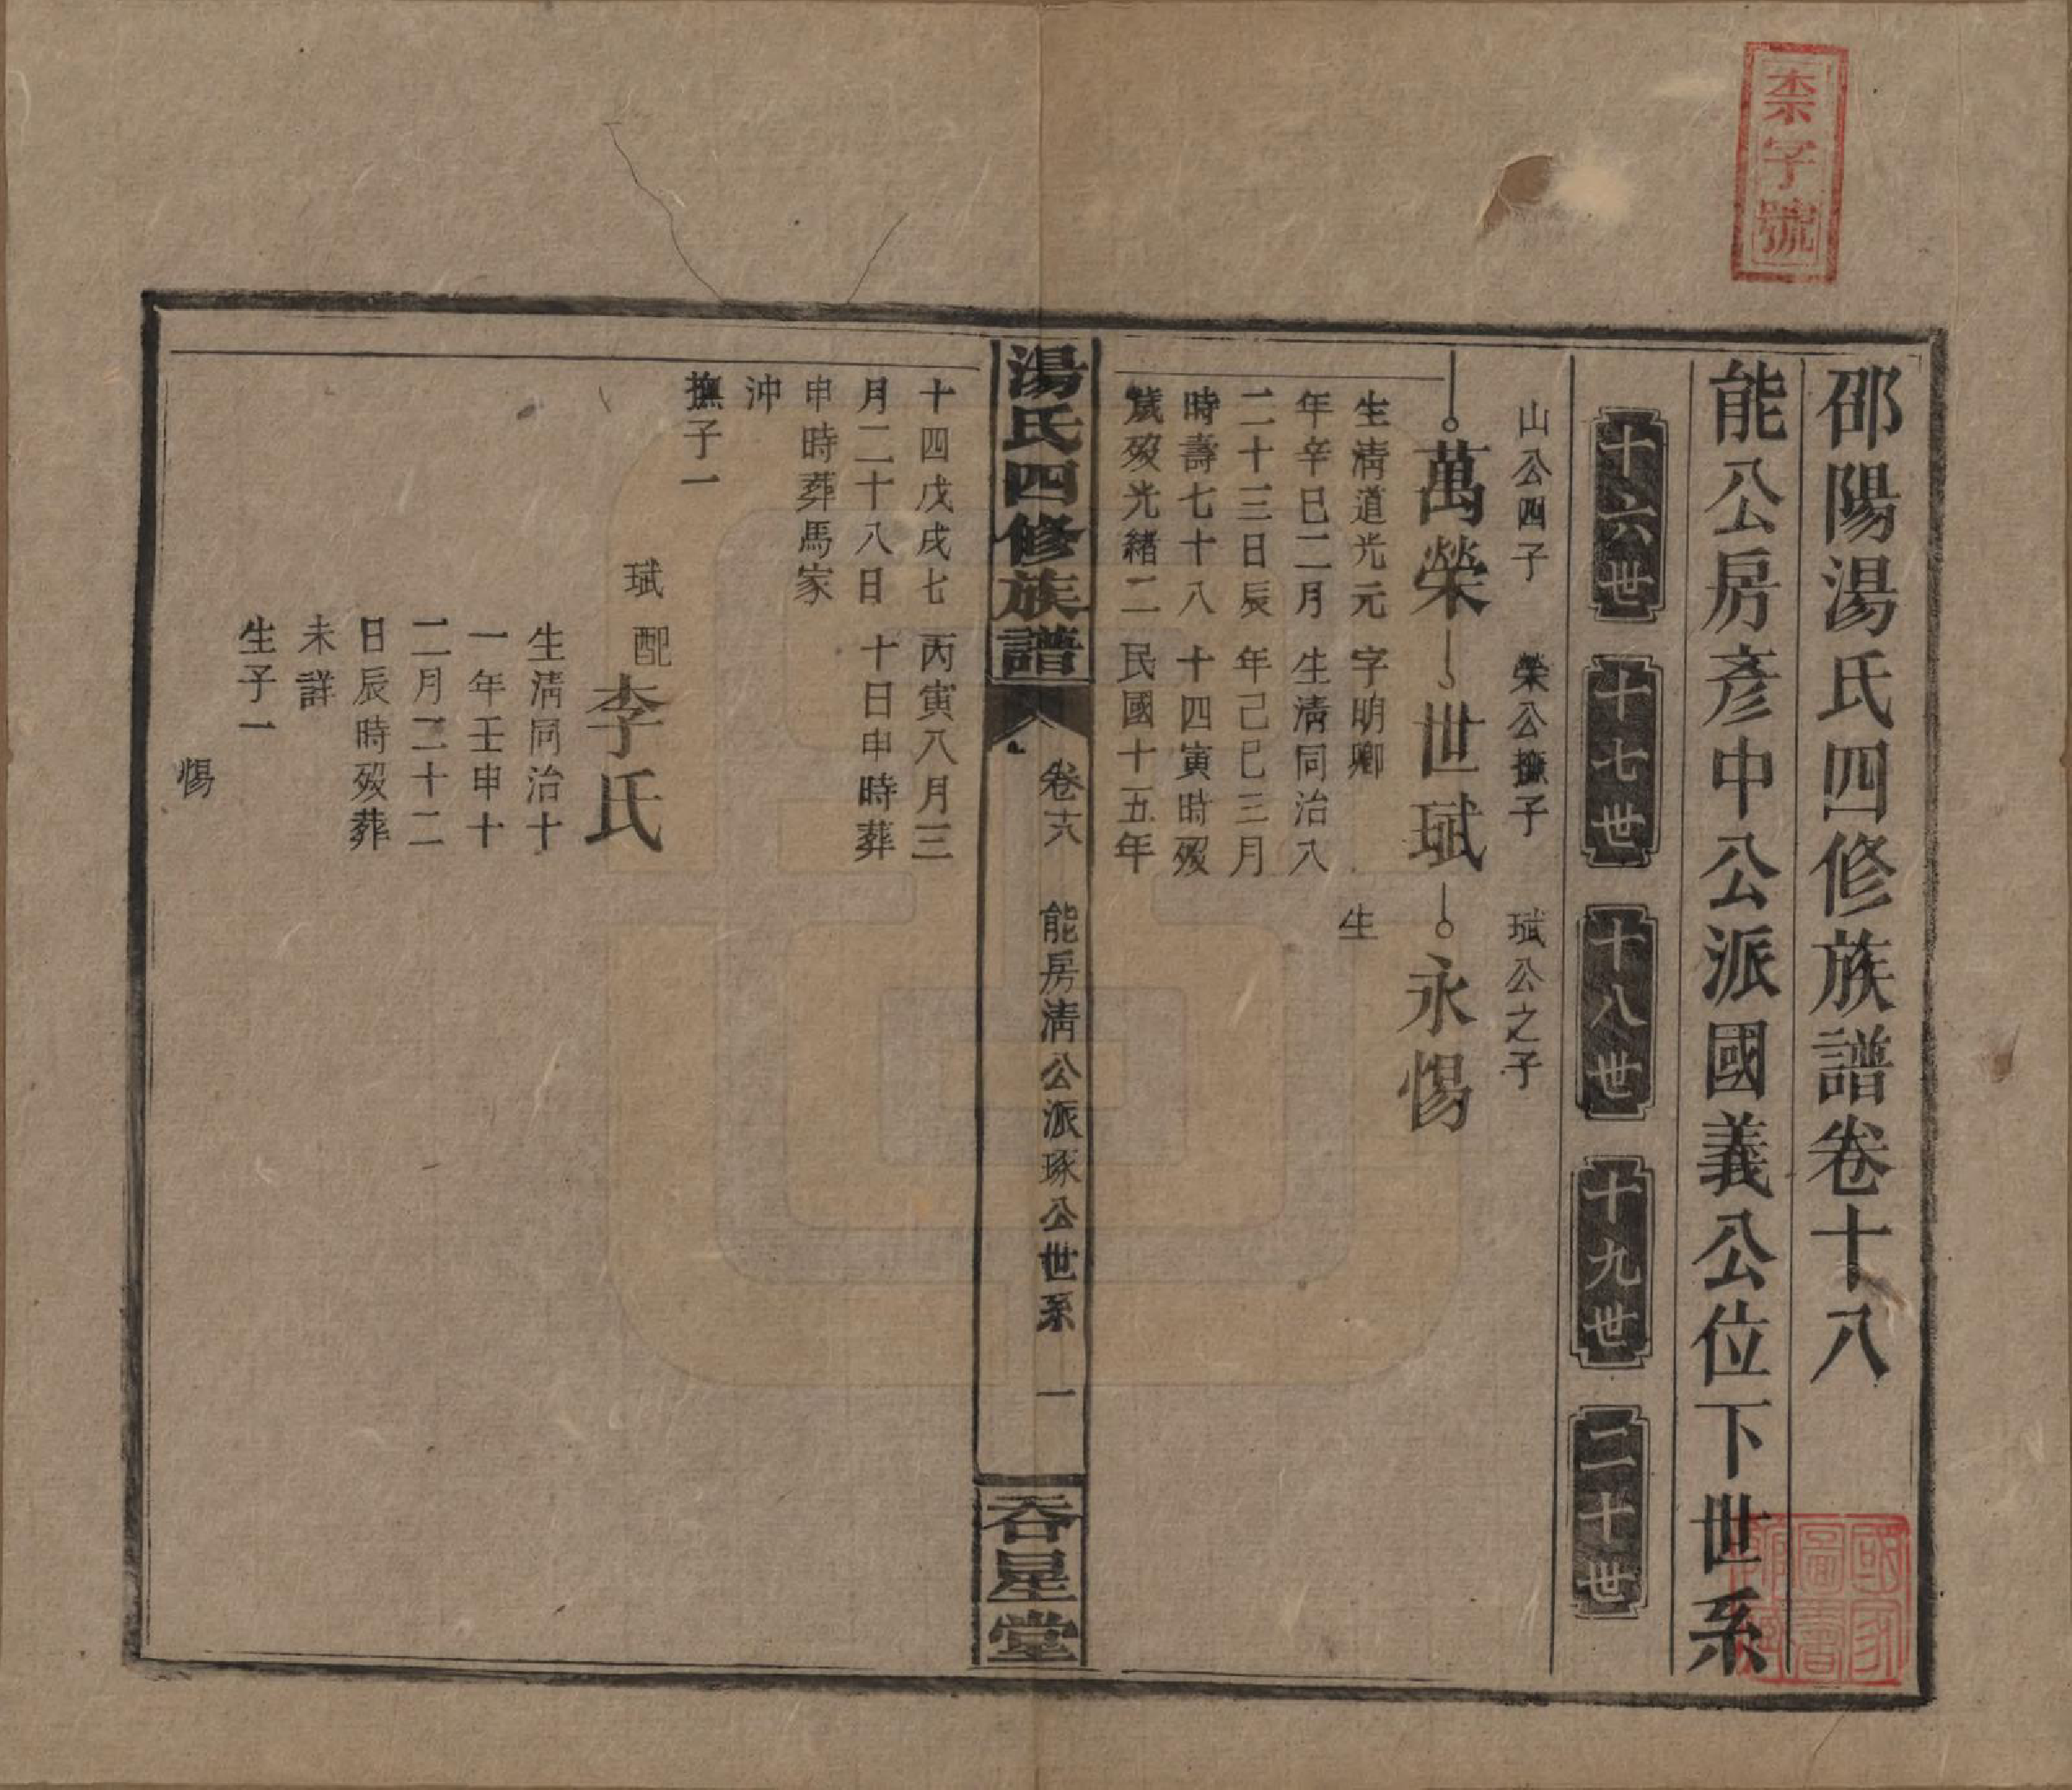 柰字號
邵陽湯氏四修族譜卷十八
能公房彥中公派國義公位下世系
十六世
十七世
十八世
十九世
二十世
山公四子
榮公撫子
珷公之子
萬榮
世珷
永惕
生淸道光元
年辛巳二月
二十三日辰
時壽七十八
歲歿光緒二
十四戊戌七
月二十八日
申時葬馬家
沖
撫子一
字明卿
生淸同治八
年己巳三月
十四寅時歿
民國十五年
丙寅八月三
十日申時葬
生
珷配李氏
生淸同治十
一年壬申十
二月二十二
日辰時歿葬
未詳
生子一
惕
湯氏四修族譜
卷十八
能房淸公派琢公世系
一
吞星堂